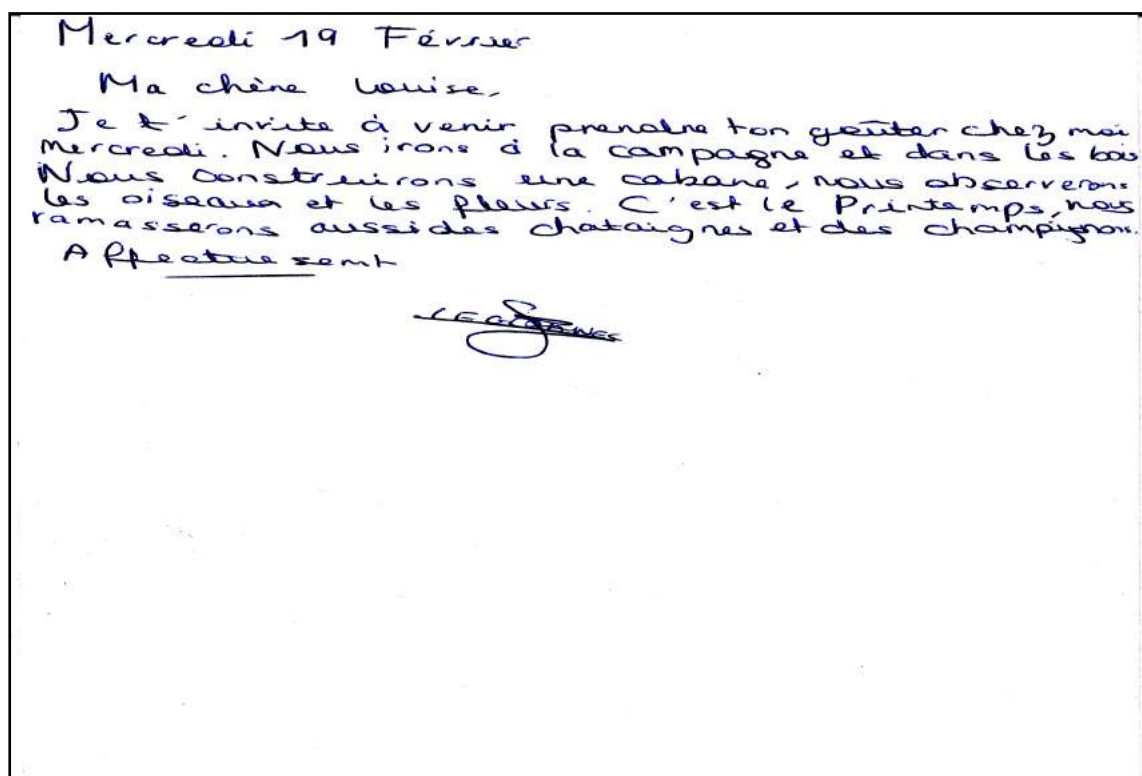 Mercredi 19 Février
Ma chère Louise,
Je t'invite à venir prendre ton goûter chez moi
mercredi. Nous irons à la campagne et dans les bois
Nous construirons une cabane, nous observerons
les oiseaux et les fleurs. C'est le Printemps, nous
ramasserons aussi des chataignes et des champignons.
Affectueusemt